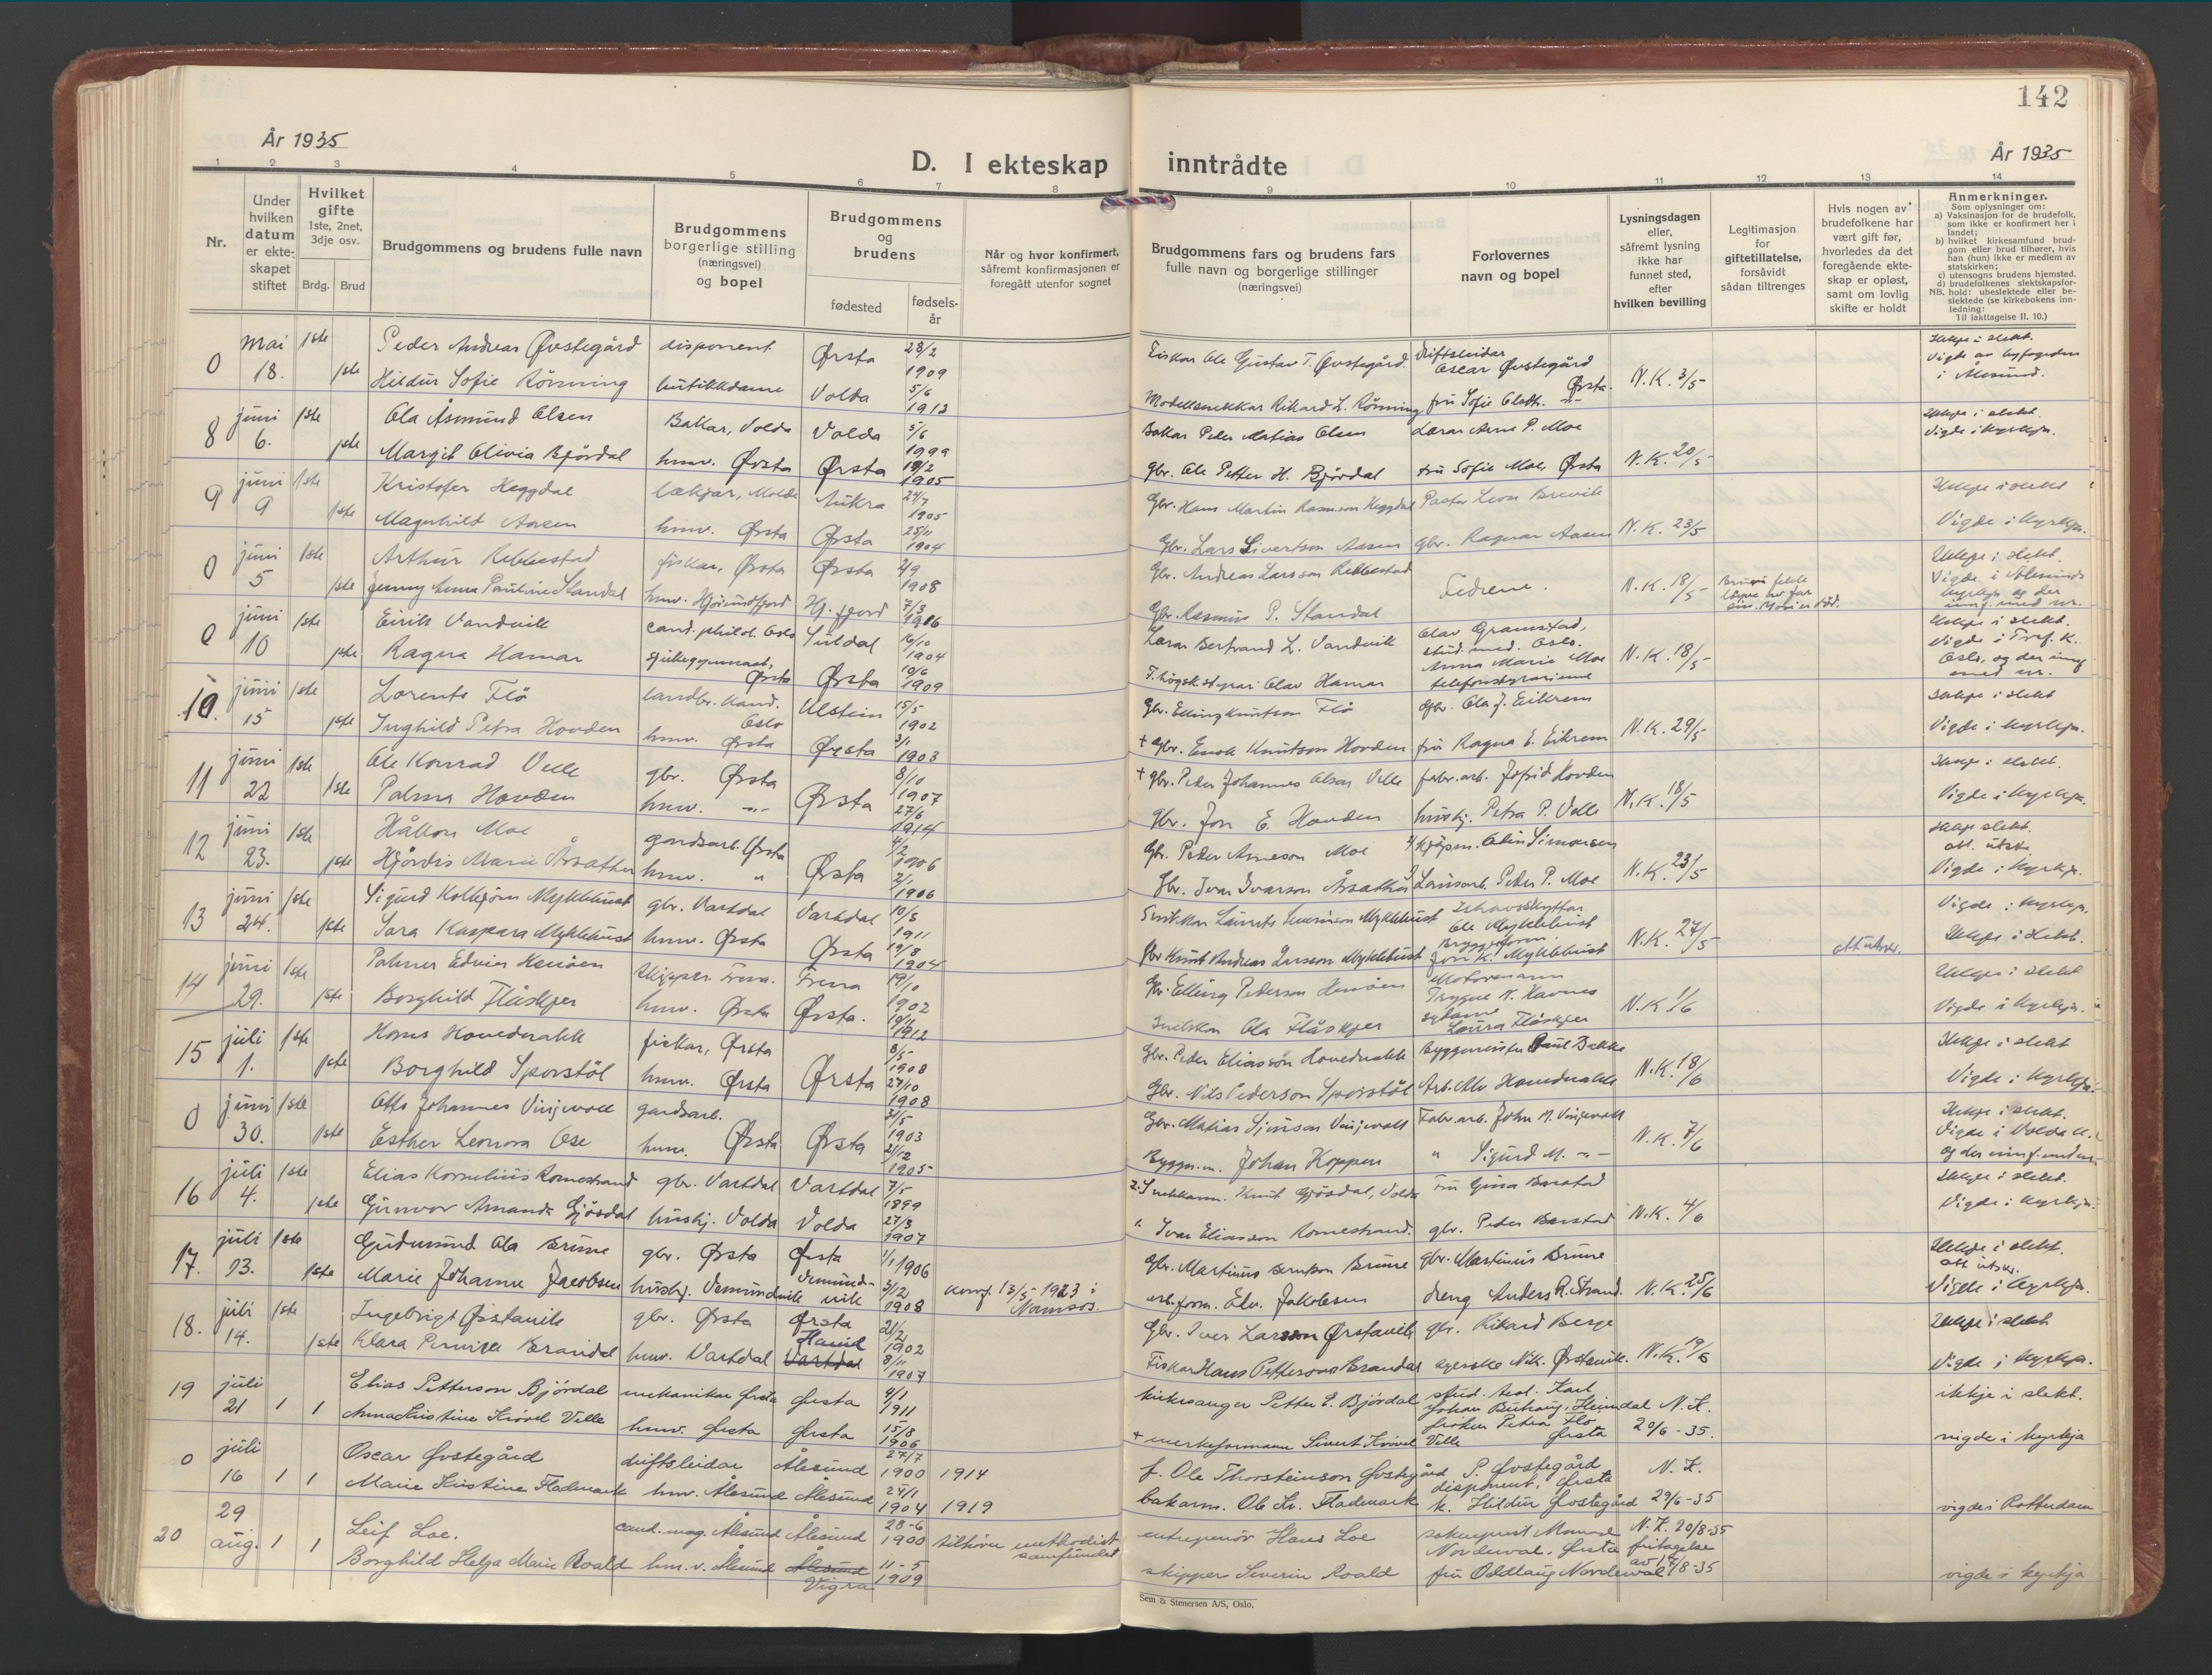 142
År 1935
År 1935
D. I ekteskap inntrådte
1 2 3 4 5 6 7 8 9 10 11 12 13 14
Nr.
Under hvilken datum er ekteskapet stiftet
Hvilket gifte 1ste, 2net, 3dje osv.
Brdg. Brud
Brudgommens og brudens fulle navn
Brudgommens borgerlige stilling (næringsvei) og bopel
Brudgommens og brudens
fødested
fødselsår
Når og hvor konfirmert, såfremt konfirmasjonen er foregått utenfor sognet
Brudgommens fars og brudens fars fulle navn og borgerlige stillinger (næringsvei)
Forlovernes navn og bopel
Lysningsdagen eller, såfremt lysning ikke har funnet sted, efter hvilken bevilling
Legitimasjon for giftetillatelse, forsåvidt sådan tiltrenges
Hvis nogen av brudefolkene har vært gift før, hvorledes da det foregående ekteskap er opløst, samt om lovlig skifte er holdt
Anmerkninger.
Som oplysninger om:
a) Vaksinasjon for de brudefolk, som ikke er konfirmert her i landet;
b) hvilket kirkesamfund brudgom eller brud tilhører, hvis han (hun) ikke er medlem av statskirken;
c) utensogns brudens hjemsted.
d) brudefolkenes slektskapsforhold: ubeslektede eller beslektede (se kirkebokens innledning:
NB. Til iakttagelse II. 10.)
0 mai 18. 1ste Peder Andreas Øvstegård disponent Ørsta 28/2 1909 Eiskar Ole Gustav T. Øvstegård. driftsleidar Oscar Øvstegård Ørsta. N.K. 3/5 Ikkje i slekt. Vigde av byfogden i Ålesund.
1ste Hildur Sofie Rönning butikkdame Volda 5/6 1912 Modellsnekkar Rikard L. Rönning fru Sofie
8 juni 6. 1ste Ola Åsmund Olsen Bakar, Volda Volda 5/6 Bakar Peder Matias Olsen Lærar Arne P. Moe N.K. 20/5 Ikkje i slekt. Vigde i kyrkja.
1ste Margit Olivia Bjørdal hmv. Ørsta Ørsta 1905 gbr. Ole Petter H. Bjørdal fru Sofie Moe, Ørsta
9 juni 9 1ste Kristofer Heggdal lækjar, Molde Aukra 24/7 1905 Gbr. Hans Martin Rasmusson Heggdal Pastor Leon Brevik N.K. 23/5 Ikkje i slekt Vigde i kyrkja.
1ste Magnhild Aasen hmv. Ørsta Ørsta 25/11 1904 Gbr. Lars Sivertson Aasen gbr. Ragnar Aasen
0 juni 5 1ste Arthur Rebbestad fiskar, Ørsta Ørsta 2/9 1908 Gbr. Andreas Larsson Rebbestad Fedrene. N.K. 18/5 Ikkje i slekt. Vigde i Ålesunds kyrkja og der innf. med nr.
1ste Jenny Anna Pauline Standal hmv. Hjørundfjord Hj. fjord 7/3 1916 Gbr. Rasmus P. Standal
0 juni 10 1ste Eirik Vandvik cand. philol. Oslo Suldal 16/10 1904 Lærar Bertrand L. Vandvik Olav Gramstad, stud. med. Oslo. N.K. 18/5 Ikkje i slekt. Vigde i Tref. K. Oslo, og der innf. med nr.
1ste Ragna Hamar sjukegymnast, Ørsta Ørsta 10/6 1909 F. høgsk.styrar Olav Hamar Anna Marie Moe telefonstyrarinne
10. juni 15 1ste Lorents Flö landbr. kand. Oslo Ulstein 15/5 1902 Gbr. Elling Knutson Flö Gbr. Ola J. Eikrem N.K. 29/5 Ikkje i slekt Vigde i kyrkja.
1ste Inghild Petra Hovden hmv. Ørsta Ørsta 3/1 1903 + Gbr. Enok Knutson Hovden fru Ragna E. Eikrem
11 juni 22 1ste Ole Konrad Velle gbr. Ørsta Ørsta 8/10 1907 + gbr. Peder Johannes Olson Velle fabr.arb. Jofrid Hovden N.K. 18/5 Ikkje i slekt. Vigde i kyrkja.
1ste Palma Hovden hmv. -"- 27/6 1914 Gbr. Jon E. Hovden hushj. Petra P. Velle
12 juni 23. 1ste Håkon Moe gardsarb. Ørsta Ørsta 4/2 1906 Gbr. Peder Arneson Moe Kjøpm. Odin Simonsen N.K. 23/5 Ikkje slekt. att. utsk. Vigde i kyrkja.
1ste Hjördis Marie Årsæther hmv. " 2/1 1906 Gbr. Ivar Ivarson Årsæther Peder P. Moe
13 juni 24. 1ste Sigurd Kolbjörn Myklebust gbr. Vartdal Vartdal 10/5 1911 Laurits Myklebust Ishavsskyttar Ole Myklebust N.K. 27/5 Vigde i kyrkja. Ikkje i slekt.
1ste Sara Kaspara Myklebust hmv. Ørsta Ørsta 19/8 1904 Gbr Knut Andreas Larsson Myklebust Jon K. Myklebust att. utskr.
14 juni 29. 1ste Palmer Edvin Henöen skipper. Fræna. Fræna 19/10 1902 Gbr. Elling Pederson Henöen Motormann Trygve K. Havnes N.K 1/6 Ikkje i slekt Vigde i kyrkja.
1ste Borghild Flåskjer hmv. Ørsta Ørsta. 19/11 1912 Snekkar Ola Flåskjer sydame Laura Flåskjer
15 juli 1. 1ste Hans Hovedenakk fiskar, Ørsta Ørsta 8/5 1908 Gbr. Peder Eliasson Hovdenakk Byggmeister Paul Bakke N.K. 18/6 Ikkje i slekt Vigde i kyrkja.
1ste Borghild Sporstöl hmv. Ørsta 27/10 1908 Gbr. Nils Pederson Sporstöl Arb. Alv Hovdenakk
0 juni 30. 1ste Otto Johannes Vinjevoll gardsarb. Ørsta Ørsta 31/5 1903 Gbr. Matias Vinjevoll Fabr.arb. John M. Vinjevoll N.K. 7/6 Ikkje i slekt. Vigde i Volda K. og der innf. under
1ste Esther Leonora Ose hmv. 21/12 1905 Byggm. Johan Koppen " Sigurd M. -"-
16 juli 4. 1ste Elias Kornelius Romestrand gbr. Vartdal Vartdal 7/5 1899 2. Knut Gjösdal, Volda Fru Gina Barstad N.K. 4/6 Ikkje i slekt. Vigde i kyrkja.
1ste Gunvor Amanda Gjösdal hushj. Volda Volda 27/3 1907 1. Ivar Eliasson Romestrand. gbr. Peder Barstad
17. juli 13. 1ste Gudmund Ola Brune gbr. Ørsta Ørsta 1/1 1906 Gbr. Martinus Brune gbr. Martinus Brune N.K. 25/6 Ikkje i slekt. att. utskr. Vigde i kyrkja.
1ste Marie Johanne Jacobsen hushj. Vemundvik Vemundvik 3/12 1908 konf. 13/5-1923 i Namsos. arb.form. Elv. Jakobsen dreng Anders R. Strand.
18. juli 14. 1ste Ingebrigt Ørstavik gbr. Ørsta Ørsta 21/2 1902 Gbr. Iver Larsson Ørstavik gbr. Rikard Berge N.K. 19/6 Ikkje i slekt Vigde i kyrkja.
1ste Klara Pernille Brandal hmv. Vartdal Hareid Vartdal 8/11 1907 Fiskar Hans Petterson Brandal Nik. Ørstavik.
19 juli 21 1 1 Elias Petterson Björdal mekanikar Ørsta Ørsta 4/1 1911 kirkesanger Petter E. Bjørdal stud. teol. Karl Johan Heimdal N.K. 20/6-35. ikkje i slekt. vigde i kyrkja
Anna Kristine Krövel Velle hmv. Ørsta Ørsta 15/8 1906 + verksformann Sivert Krövel Velle fröken Petra Flö Ørsta
0 juli 16 1 1 Oscar Øvstegård driftsleidar Ålesund 27/7 1900 1914 f. Ole Thorsteinson Øvstegård P. Øvstegård disponent, Ørsta N.K. 29/6-35 vigde i Rotterdam
Marie Kristine Flademark hmv. Ålesund Ålesund 25/1 1904 1919 bakarm. Ole Kr. Flademark k. Hildur Øvstegård
20 29 aug. 1 1 Leif Loe. cand. mag. Ålesund Ålesund 28-6 1900 tilhører methodistsamfundet entreprenör Hans Loe sokneprest Norderval, Ørsta N.K. 20/8-35 fritagelse av 17/8-35 vigde i kyrkja
Borghild Helga Marie Roald hm.v. Ålesund Ålesund Vigra 11-5 1909 skipper Severin Roald fru Oddlaug Norderval
Sem & Stenersen A/S, Oslo.